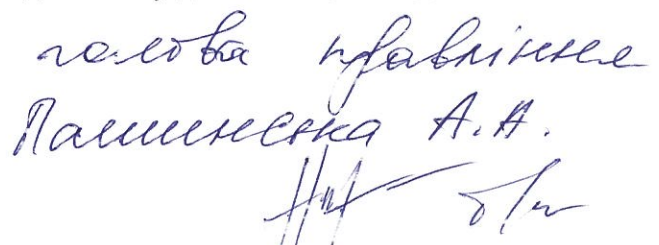 голова правління
Пашинська А.А.